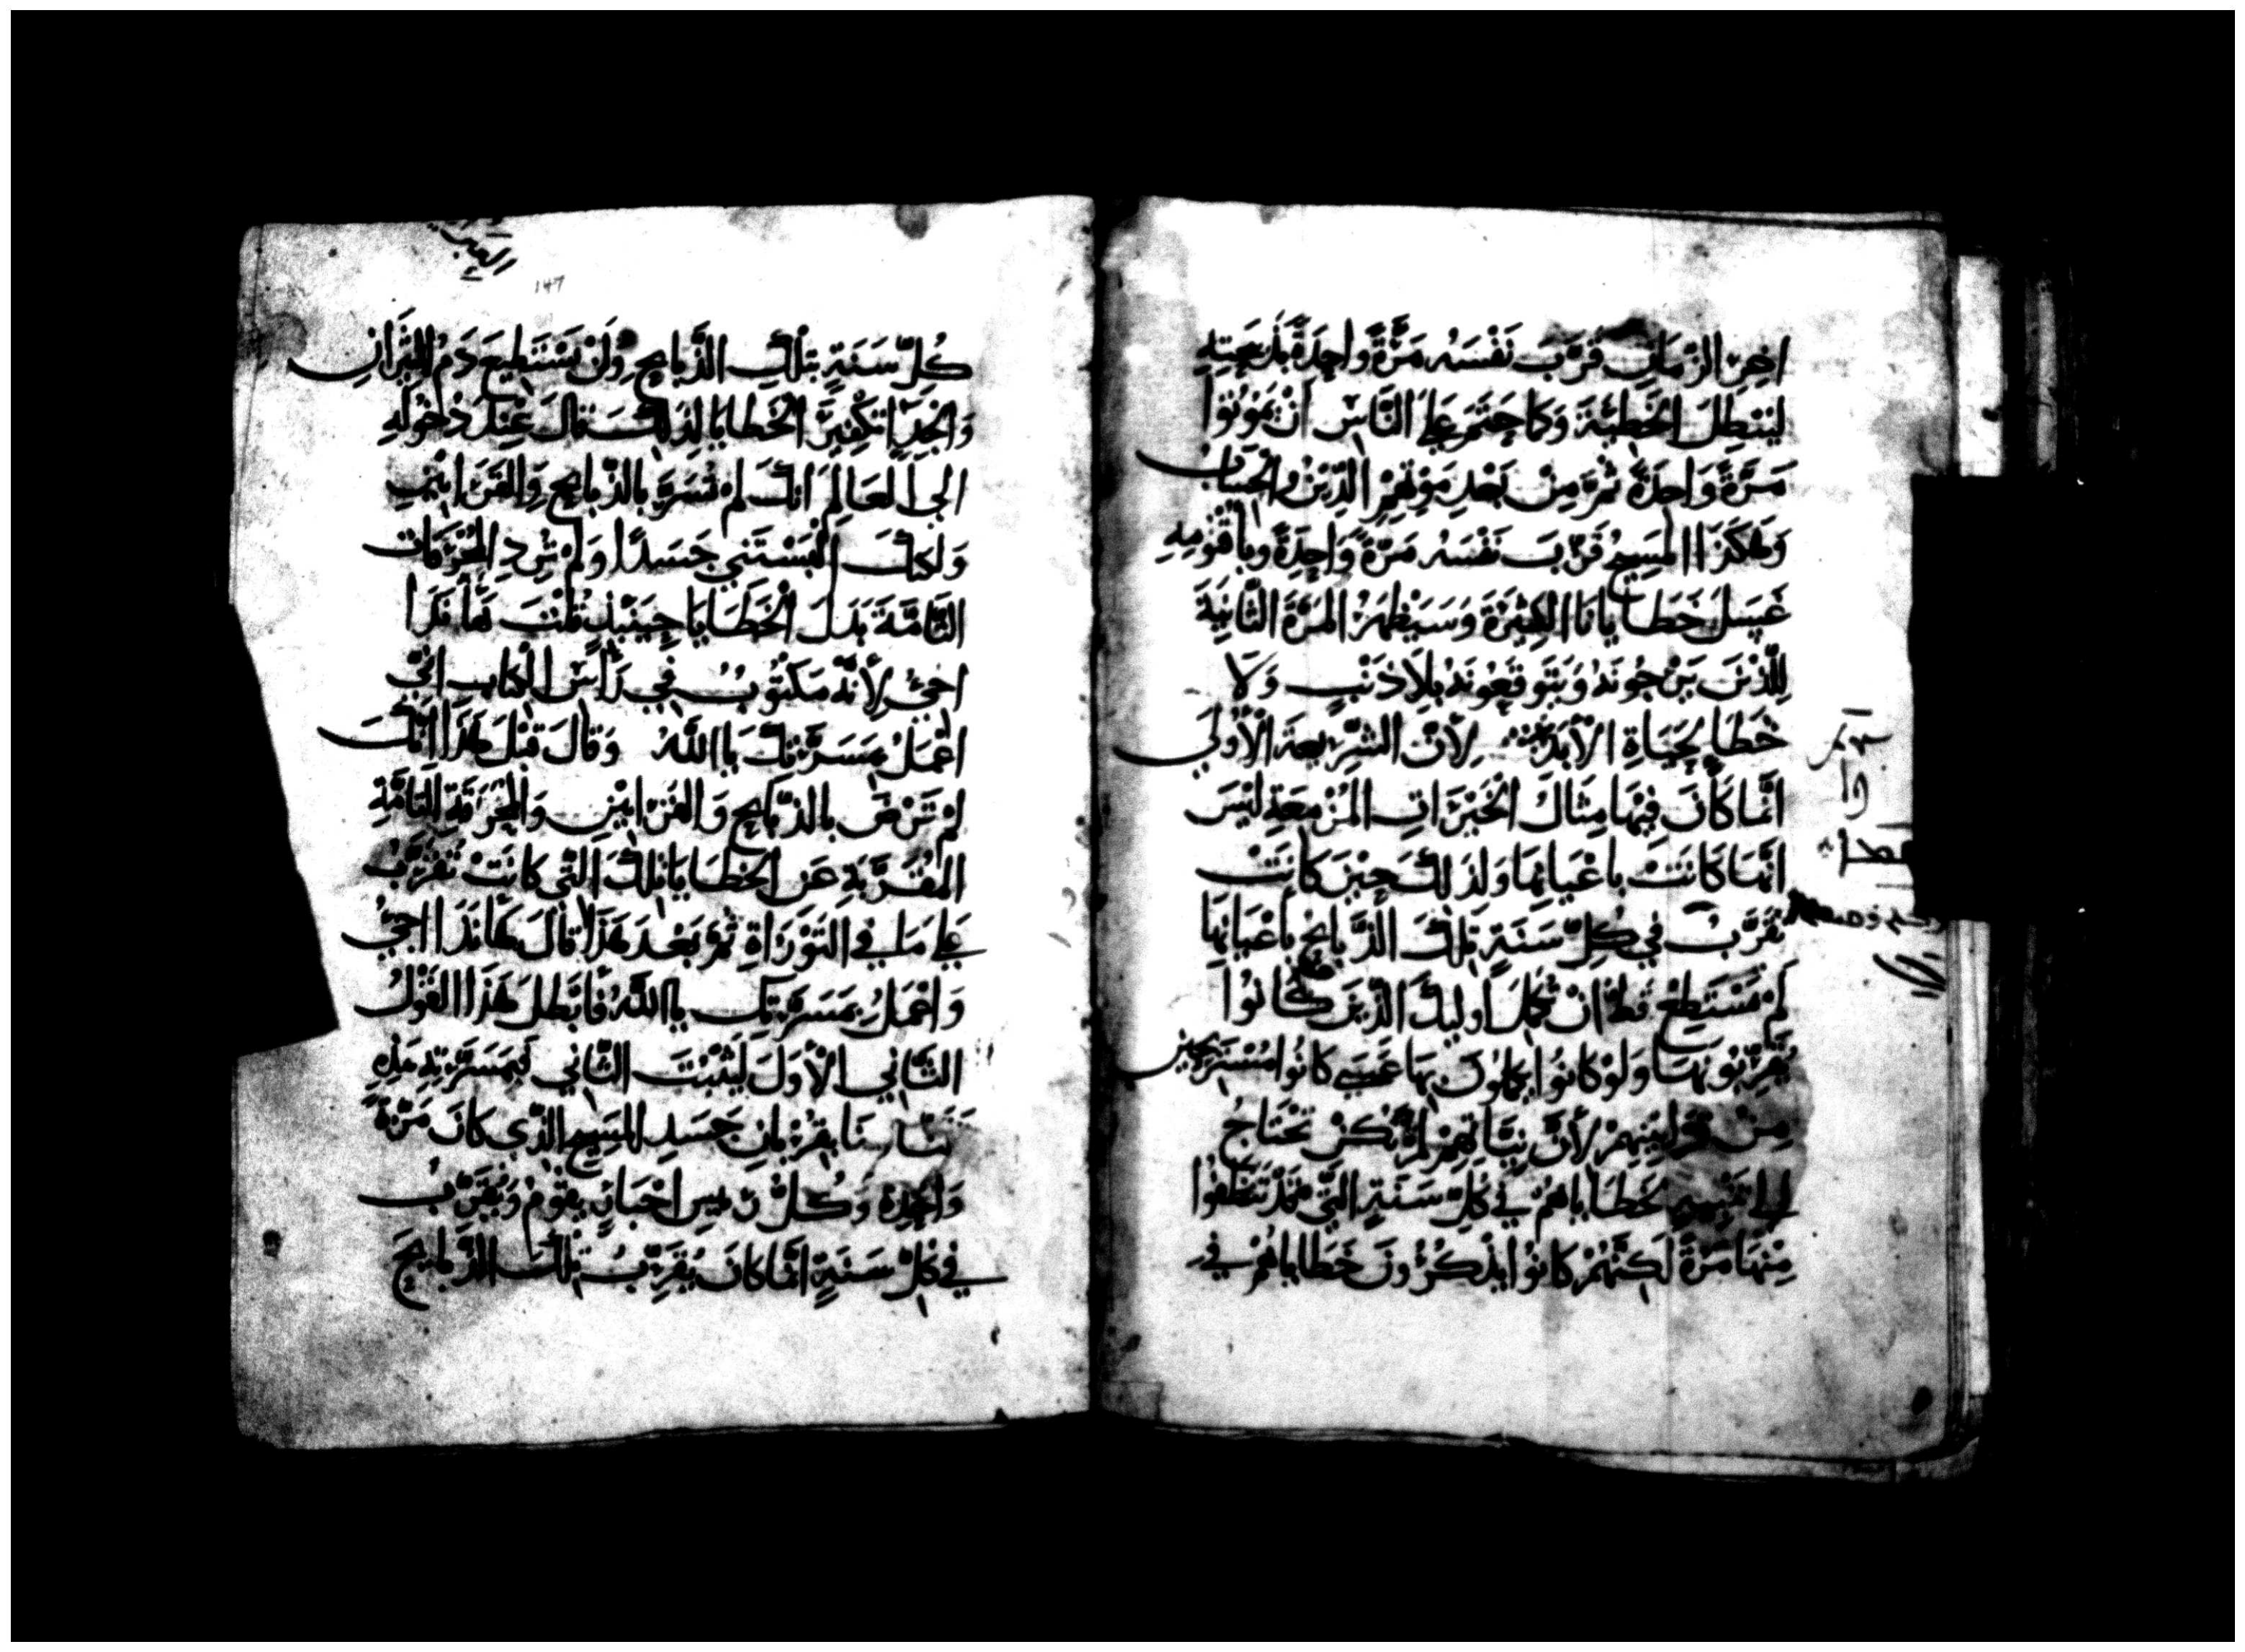 اخِرِ الزَّمَانِ قَرَّبَ نَفْسَهُ مَرَّةً وَاحِدَةً بِذَبِيحَتِهِ
لِيُبْطِلَ الْخَطِيئَةَ وَكَما حُتِمَ عَلَى النَّاسِ اَنْ يَمُوتُوا
مَرَّةً وَاحِدَةً ثُمَّ مِنْ بَعْدِ مَوْتِهِمِ الدَّيْنُ وَالْحِسَابُ
وَهٰكَذَا الْمَسِيحُ قَرَّبَ نَفْسَهُ مَرَّةً وَاحِدَةً وَبِاقْنُومِهِ
غَسَلَ خَطَايَانَا الكَثِيْرَةَ وَسَيَظْهَرُ المَرَّةَ الثَّانِيَةَ
لِلَّذِيْنَ يَرْجُونَهُ وَيَتَوَقَّعُونَهُ بِلَا ذَنْبٍ وَلَا
خَطَا لِحَيَاةِ الْأَبَدِ لِأَنَّ الشَّرِيعَةَ الْأُوْلَي
اِنَّمَا كَانَ فِيْهَا مِثَالُ الْخَيْرَاتِ المُزْمِعَةِ لَيْسَ
اِنَّمَا كَانَتْ بِاعْيَانِهَا وَلِذَلِكَ حِيْنَ كَانَتْ
تُقَرَّبُ فِي كُلِّ سَنَةٍ تِلْكَ الذَّبَايِحُ بِاعْيَانِهَا
لَمْ تَسْتَطِعْ قَطُّ اَنْ تُكَمِّلَ اولَيِكَ الَّذِيْنَ كَانُوا
يُقَرِّبُونَهَا وَلَوْ كَانُوا يَكْمُلُونَ بِهَا عَسَى كَانُوا مُسْتَرِيحِيْن
مِنْ قَرَابِيْنِهِمْ لِأَنَّ نِيَّاتِهِمْ لَمْ تَكُنْ تَحْتَاجُ
خَطَايَاهُمْ فِي كُلِّ سَنَةٍ الَّتِي قَدْ تَنَظَّفُوا
مِنْهَا مَرَّةً لَكِنَّهُمْ كَانُوا يَذْكُرُونَ خَطَايَاهُمْ فِي
147
كُلِّ سَنَةٍ بِتِلْكَ الذَّبَايِحِ وَلَنْ يَسْتَطِيعَ دَمُ الثِّيْرَانِ
وَالْجِدَاِ تَكْفِيْرَ الْخَطَايَا لِذَلِكَ قَالَ عِنْدَ دُخُولِهِ
اِلَى الْعَالَمِ اِنَّكَ لَمْ تُسَرَّ بِالذَّبَايِحِ وَالقَرَابِيْنِ
وَلَكِنَّكَ اَلْبَسْتَنِي جَسَدًا وَلَمْ تُرِدِ المُحْرَقَاتِ
التَّامَّةَ بَدَلَ الْخَطَايَا حِيْنَئِذٍ قُلْتَ هَأَنَذَا
اجِيْ لِأَنَّهُ مَكْتُوبٌ فِي رَأْسِ الْكِتَابِ اَنِّي
اعْمَلُ مَسَرَّتَكَ يَا اَللّٰهُ وَقَالَ قَبْلَ هَذَا اِنَّكَ
لَمْ تَرْضَ بِالذَّبَايِحِ وَالقَرَابِيْنِ وَالْمُحْرَقَةِ التَامَّةِ
المُقَرَّبَةِ عَنِ الْخَطَايَا تِلْكَ الَّتِي كَانَتْ تُقَرَّبُ
عَلَى مَا فِي التَّوْرَاةِ ثُمَّ بَعْدَ هَذَا قَالَ هَأَنَذَا اجِيُ
وَاعْمَلُ بِمَسَرَّتِكَ يا اَللّٰهُ فَأَبْطَلَ هَذَا القَوْلُ
الثَّانِي الْأَوَّلَ لِيُثَبِّتَ الثَّانِي فَبِمَسَرَّتِهِ هَذِهِ
بِقُرْبَانِ جَسَدِ الْمَسِيحِ الَّذِي كَانَ مَرَّةً
وَاحِدَةً وَكُلُّ رَيِيسِ احْبَارٍ يَقُومُ وَيُقَرِّبُ
فِي كُلِّ سَنَةٍ اِنَّمَا كَانَ يُقَرِّبُ تِلْكَ الذَّبَايِحَ